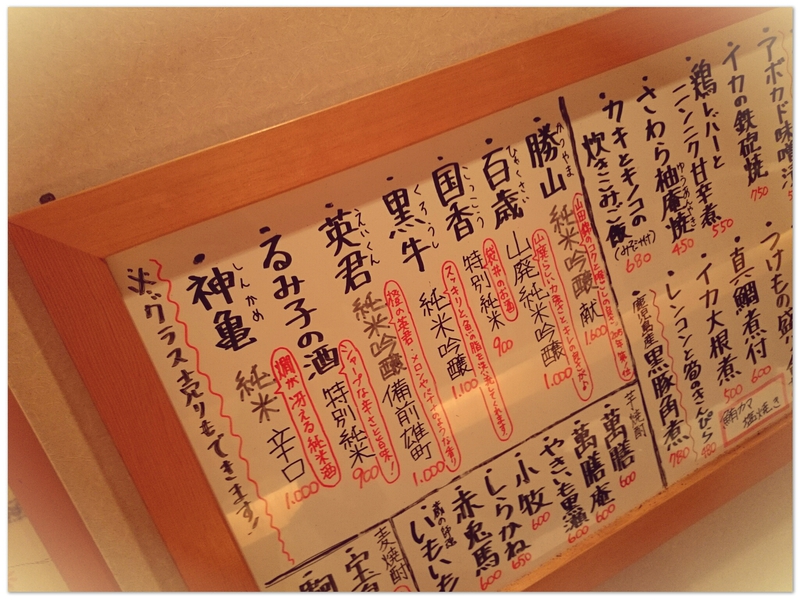 アボカド味噌
イカの鉄砲焼 750
鶏レバーと
ニンニク甘辛煮 550
さわら柚庵焼 450
ゆうあんやき
カキとキノコの
炊きこみご飯 (みそ汁付) 680
つけもの盛
真鯛煮付 600
イカ大根煮 500
レンコンと筍のきんぴら 480
鹿児島産黒豚角煮 780
鯛カマ
塩焼き
勝山 純米吟醸 献 1.600
かつやま
百歳 山廃純米吟醸 1.000
ひゃくさい
国香 特別純米 900
こっこう
袋井のお酒
黒牛 純米吟醸 1.100
くろうし
スッキリと魚の脂を洗い流してくれます
英君 純米吟醸 備前雄町 1.000
えいくん
るみ子の酒 特別純米 900
シャープな辛さと旨味!
神亀 純米 辛口 1.000
しんかめ
燗が冴える純米酒
※グラス売りもできます!
芋焼酎
萬膳 600
萬膳庵 600
やきいも黒瀬 600
小牧 600
しらかね 650
赤兎馬 600
蔵の師魂
いもいち
麦焼酎